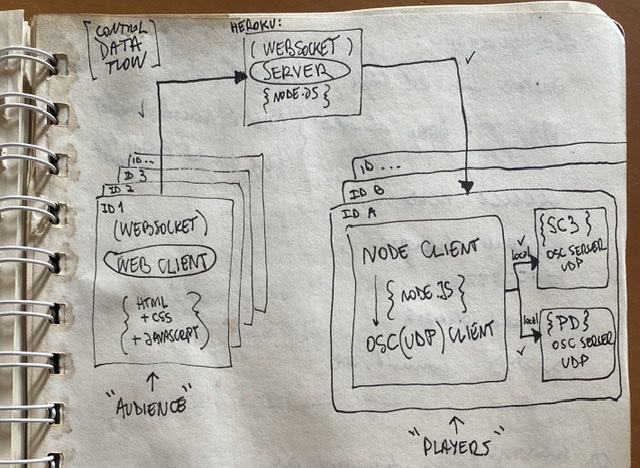 [CONTROL
DATA
FLOW]
HEROKU:
(WEBSOCKET)
SERVER
{NODE.JS}
ID...
ID 3
ID 2
ID 1
(WEBSOCKET)
WEB CLIENT
{HTML
+CSS
+JAVASCRIPT}
"AUDIENCE"
ID ...
ID B
ID A
NODE CLIENT
{NODE.JS}
OSC(UDP) CLIENT
local
{SC3}
OSC SERVER
UDP
local
{PD}
OSC SERVER
UDP
"PLAYERS"